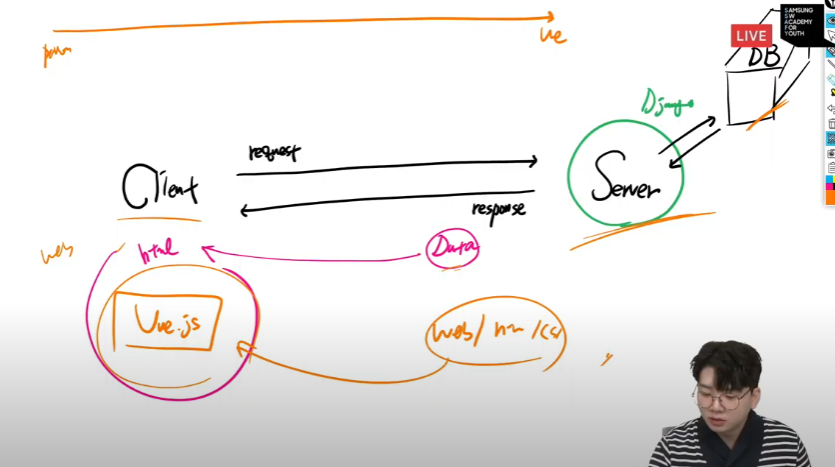 LIVE
SAMSUNG
SW
ACADEMY
FOR
YOUTH
DB
Django
request
Client
Server
response
web
html
Data
Vue.js
web/